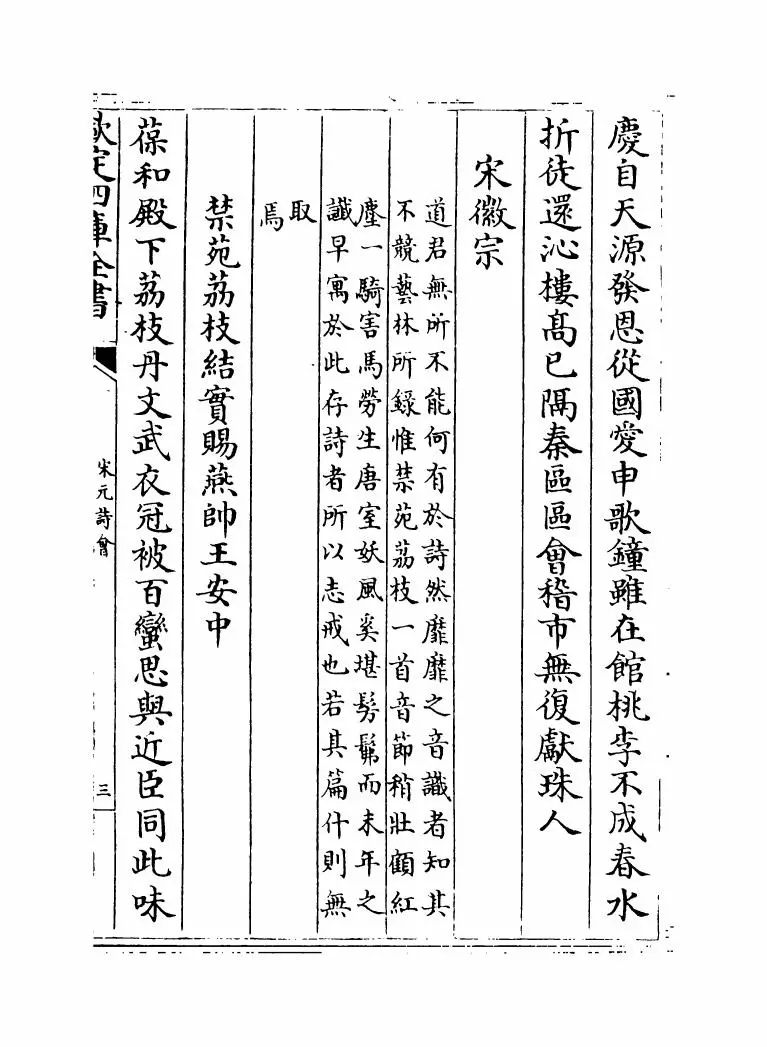 慶自天源發恩從國愛申歌鐘雖在館桃李不成春水
折徒還沁樓髙已隔秦區區會稽市無復獻珠人
宋徽宗
道君無所不能何有於詩然靡靡之音識者知其
不競藝林所録惟禁苑荔枝一首音節稍壯顧紅
塵一騎害馬勞生唐室妖風奚堪髣髴而末年之
讖早寓於此存詩者所以志戒也若其篇什則無
取
焉
禁苑荔枝結實賜燕帥王安中
葆和殿下荔枝丹文武衣冠被百蠻思與近臣同此味
欽定四庫全書
宋元詩會
三